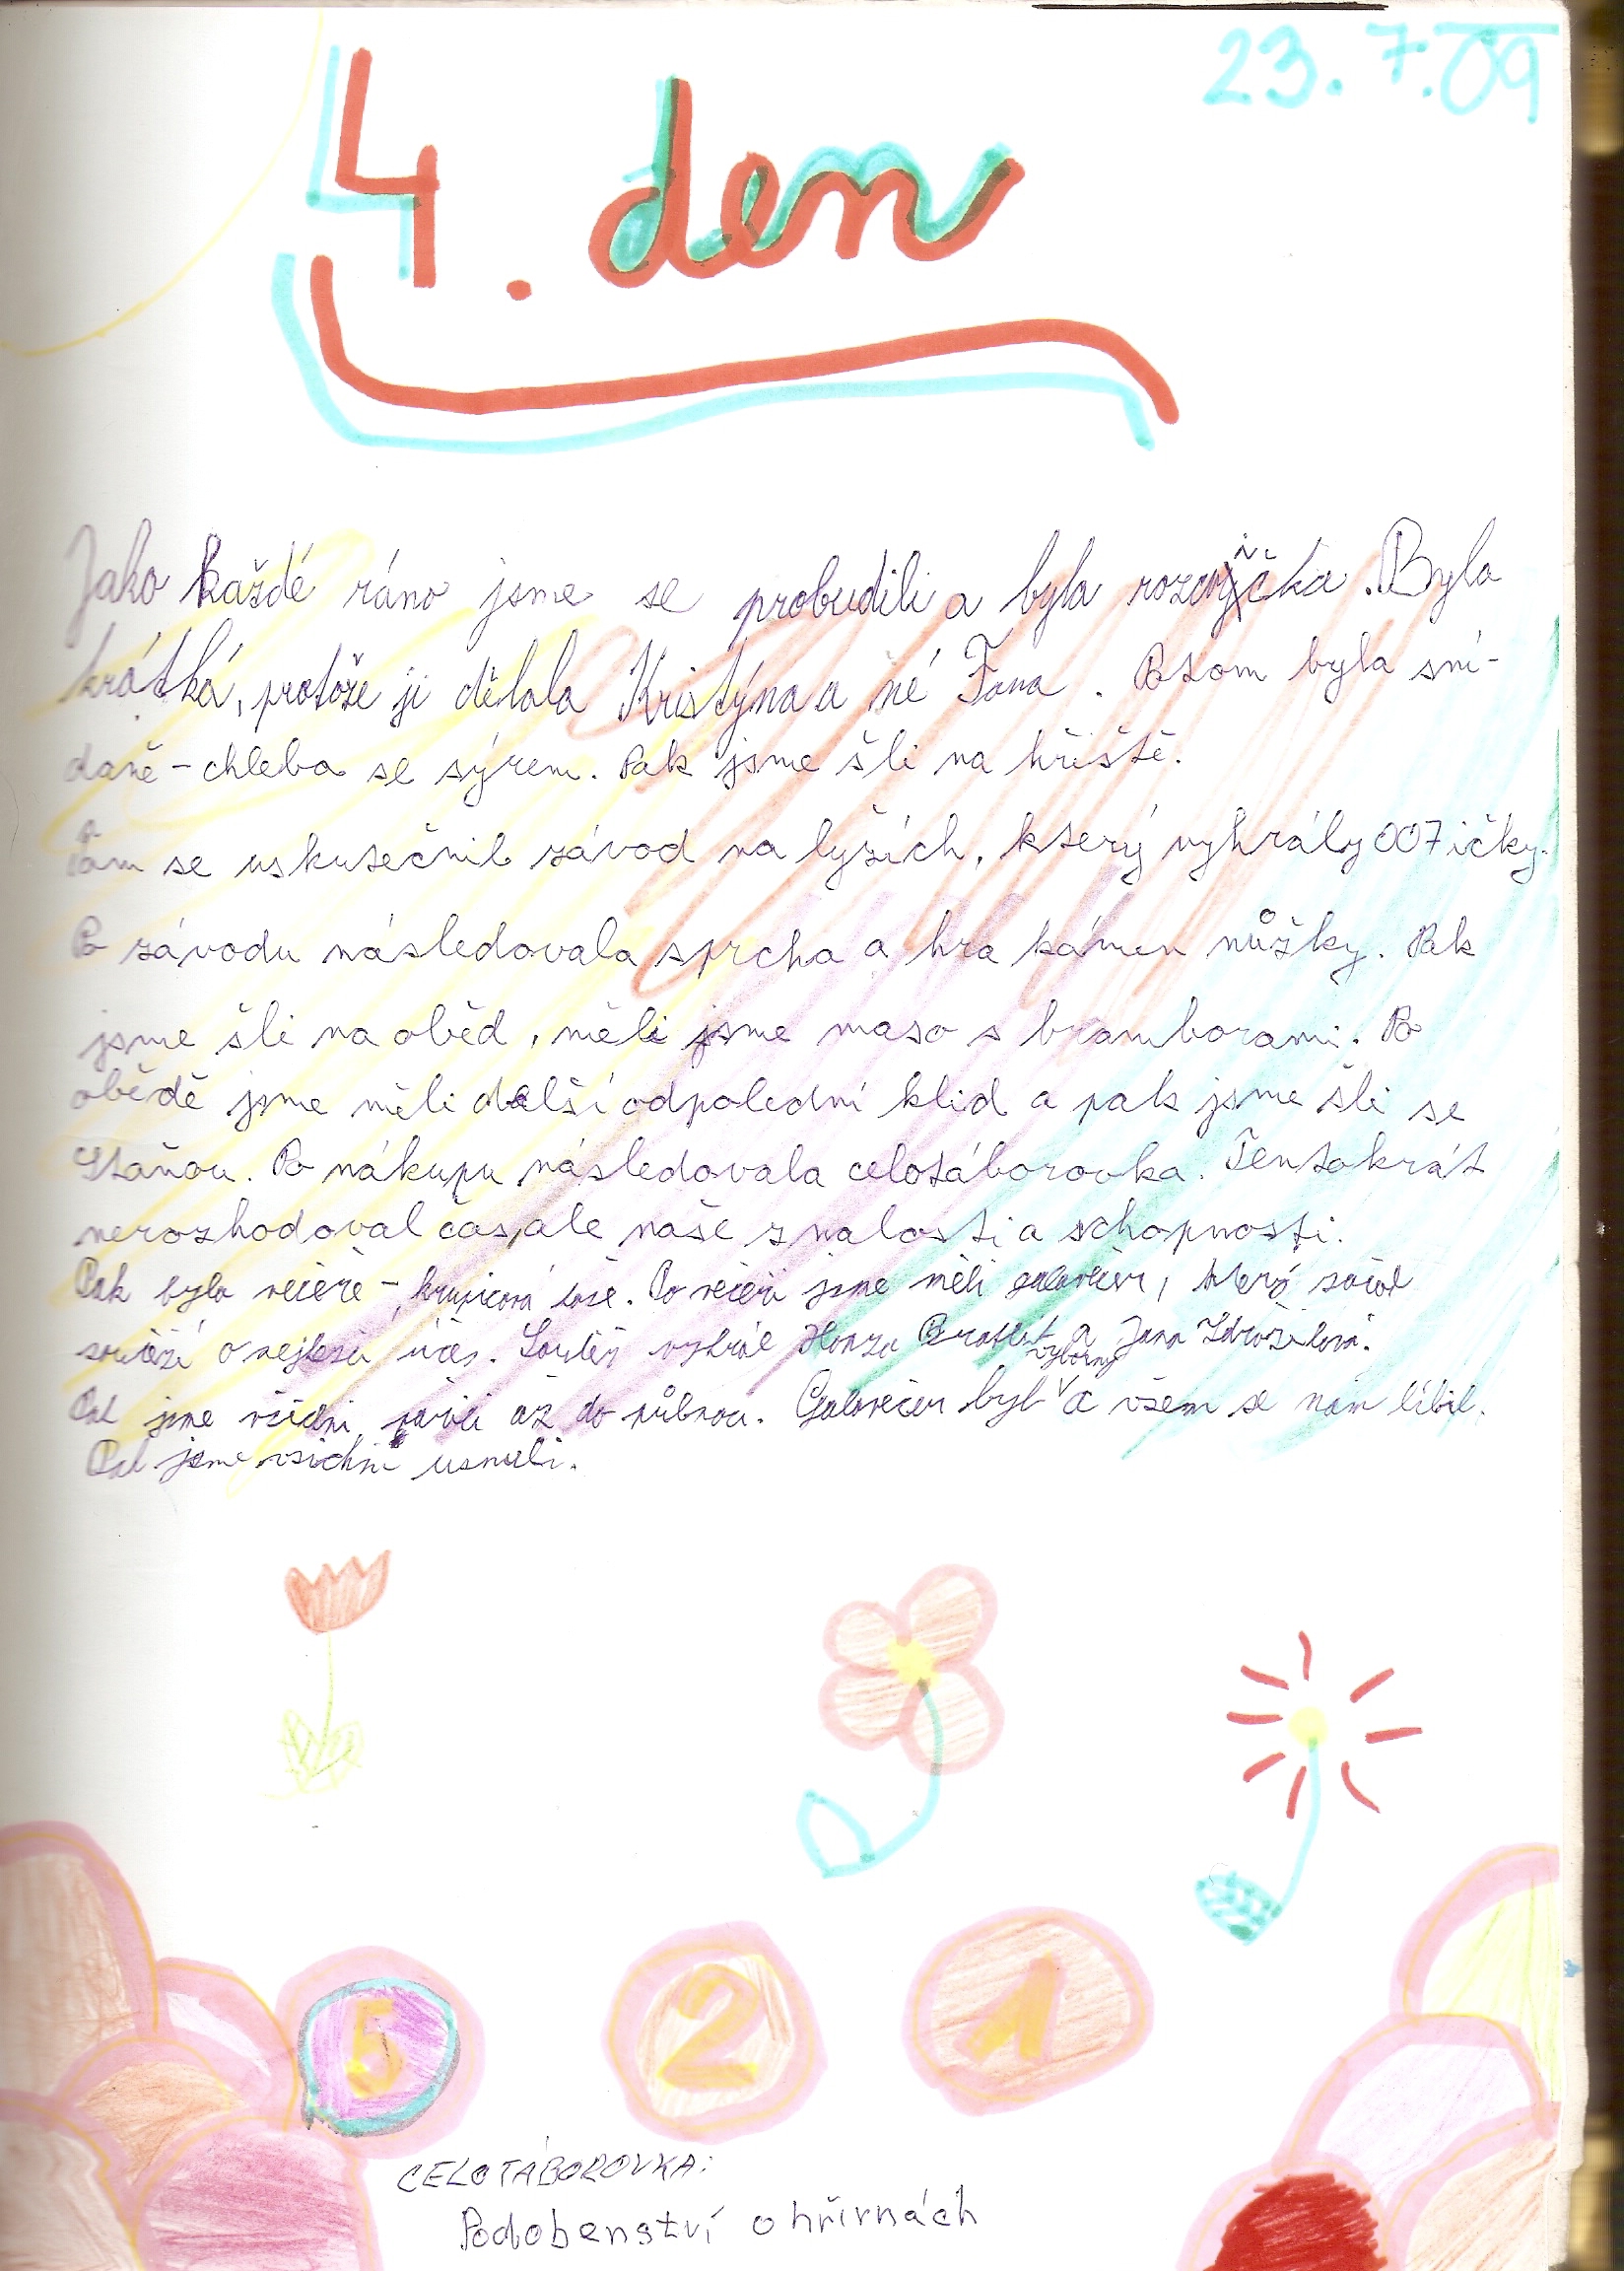 23.7.09
4. den
Jako každé ráno jsme se probudili a byla rozcvička. Byla
krátká, protože ji dělala Kristýna a né Fana. Potom byla sní-
daně - chleba se sýrem. Pak jsme šli na hřiště.
Tam se uskutečnil závod na lyžích, který vyhrály 007ičky.
Po závodu následovala sprcha a hra kámen nůžky. Pak
jsme šli na oběd, měli jsme maso s bramborami. Po
obědě jsme měli další odpolední klid a pak jsme šli se
Staňou. Po nákupu následovala celotáborovka. Tentokrát
nerozhodoval čas, ale naše znalosti a schopnosti.
Pak byla večeře - krupicová kaše. Po večeři jsme měli galavečer, který začal
soutěží o nejlepší účes. Soutěž vyhrál Honza a Jana Zdražilová.
Pak jsme všichni pařili až do půlnoci. Galavečer byl výborný a všem se nám líbil.
Pak jsme všichni usnuli.
5 2 1
CELOTÁBOROVKA:
Podobenství o hřivnách